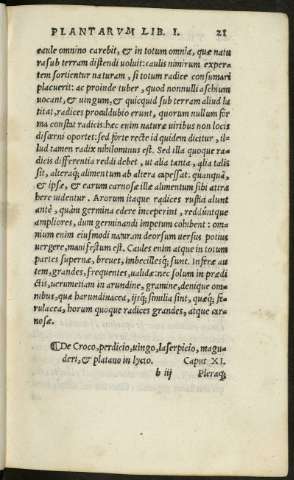 PLANTARVM LIB. I. 21
caule omnino carebit, & in totum omnia, quæ natu
ra sub terram distendi uoluit: caulis nimirum exper
tem sortientur naturam, si totum radice consumari
placuerit: ac proinde tuber, quod nonnulli aschium
uocant, & uingum, & quicquid sub terram aliud la
titat, radices procul dubio erunt, quorum nullum for
ma constat radicis: hæc enim naturæ uiribus non loci
discerni oportet: sed forte recte id quidem dicitur, il
lud tamen radix nihilominus est. Sed illa quoque ra
dicis differentia reddi debet, ut alia tanta, alia talis
sit, alteraq; alimentum ab altera capessat. quanquã,
& ipsæ, & earum carnosæ illæ alimentum sibi attra
here uidentur. Arorum itaque radices rustici uni
ante, quàm germina edere inceperint, reddúntque
ampliores, dum germinandi impetum cohibent: om
nium enim eiusmodi naturam deorsum uersus potius
uergere, manifestum est. Caules enim atque in totum
partes supernæ, breues, imbecillesq; sunt. Infræ au
tem, grandes, frequentes, ualidæ: nec solum in prædi
ctis, uerumetiam in arundine, gramine, denique om
nibus, quæ harundinacea, ijsq; similia sint, quæq; fe
rulacea, horum quoque radices grandes, atque car
nosæ.
De Croco, perdicio, uingo, laserpicio, magu
deri, & platano in lycio. Caput XI.
b iij Pleraq;